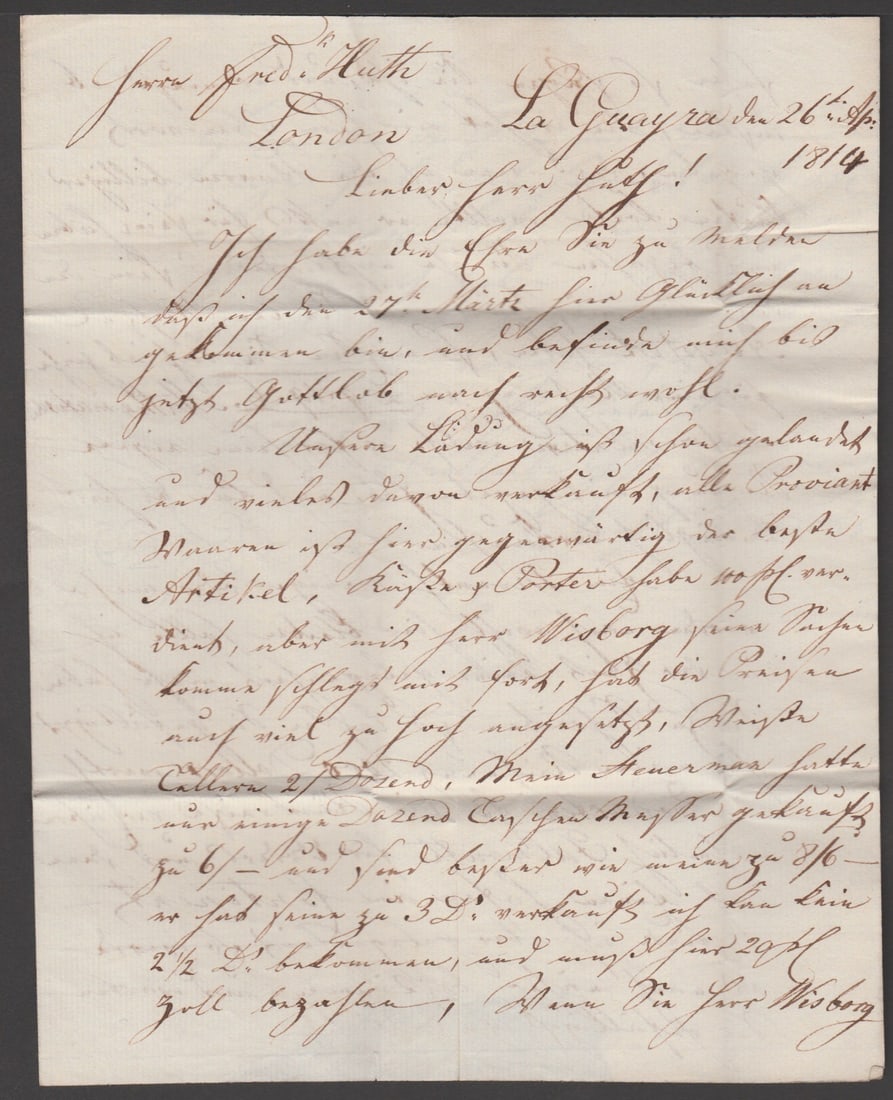 Herrn Fred.k Huth
London
La Guayra den 26t. Ap:
1814
Lieber Herr Huth!
Ich habe die Ehre Sie zu melden
daß ich den 27th. Märtz hier Glücklich an
gekommen bin, und befinde mich bis
jetzt Gottlob noch recht wohl.
Unsere Ladung ist schon gelandet
und vieles davon verkauft, alle Proviant
Waaren ist hier gegenwärtig der beste
Artikel, Käße & Porter habe 100 pCt. ver-
dient, aber mit Herr Wisborg seine Sachen
komme schlegt mit fort, hat die Preisen
auch viel zu hoch angesetzt, Weiße
Tellern 2/ Dozend, Mein Steuerman hatte
nur einige Dozend Taschen Messer gekauft
zu 6/— und sind beßer wie meine zu 8/6 —
er hat seine zu 3 Dr. verkauft ich kan kein
2 1/2 Dr. bekommen, und muß hier 20 pCt
Zoll bezahlen, Wenn Sie Herr Wisborg